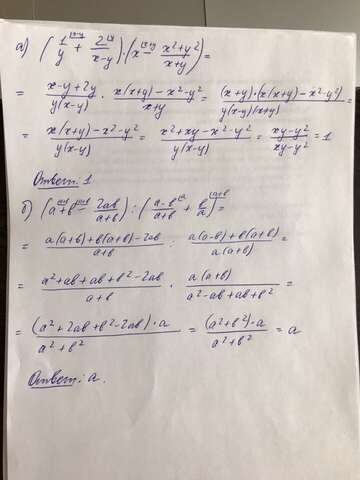 а) (1/y + 2/(x-y)) · (x - (x²+y²)/(x+y)) =
= (x-y+2y)/(y(x-y)) · (x(x+y)-x²-y²)/(x+y) = ((x+y)·(x(x+y)-x²-y²))/(y(x-y)(x+y)) =
= (x(x+y)-x²-y²)/(y(x-y)) = (x²+xy-x²-y²)/(y(x-y)) = (xy-y²)/(xy-y²) = 1
Ответ: 1
б) (a+b - 2ab/(a+b)) : ((a-b)/(a+b) + b/a) =
= (a(a+b)+b(a+b)-2ab)/(a+b) : (a(a-b)+b(a+b))/(a(a+b)) =
= (a²+ab+ab+b²-2ab)/(a+b) · (a(a+b))/(a²-ab+ab+b²) =
= ((a²+2ab+b²-2ab)·a)/(a²+b²) = ((a²+b²)·a)/(a²+b²) = a
Ответ: a.